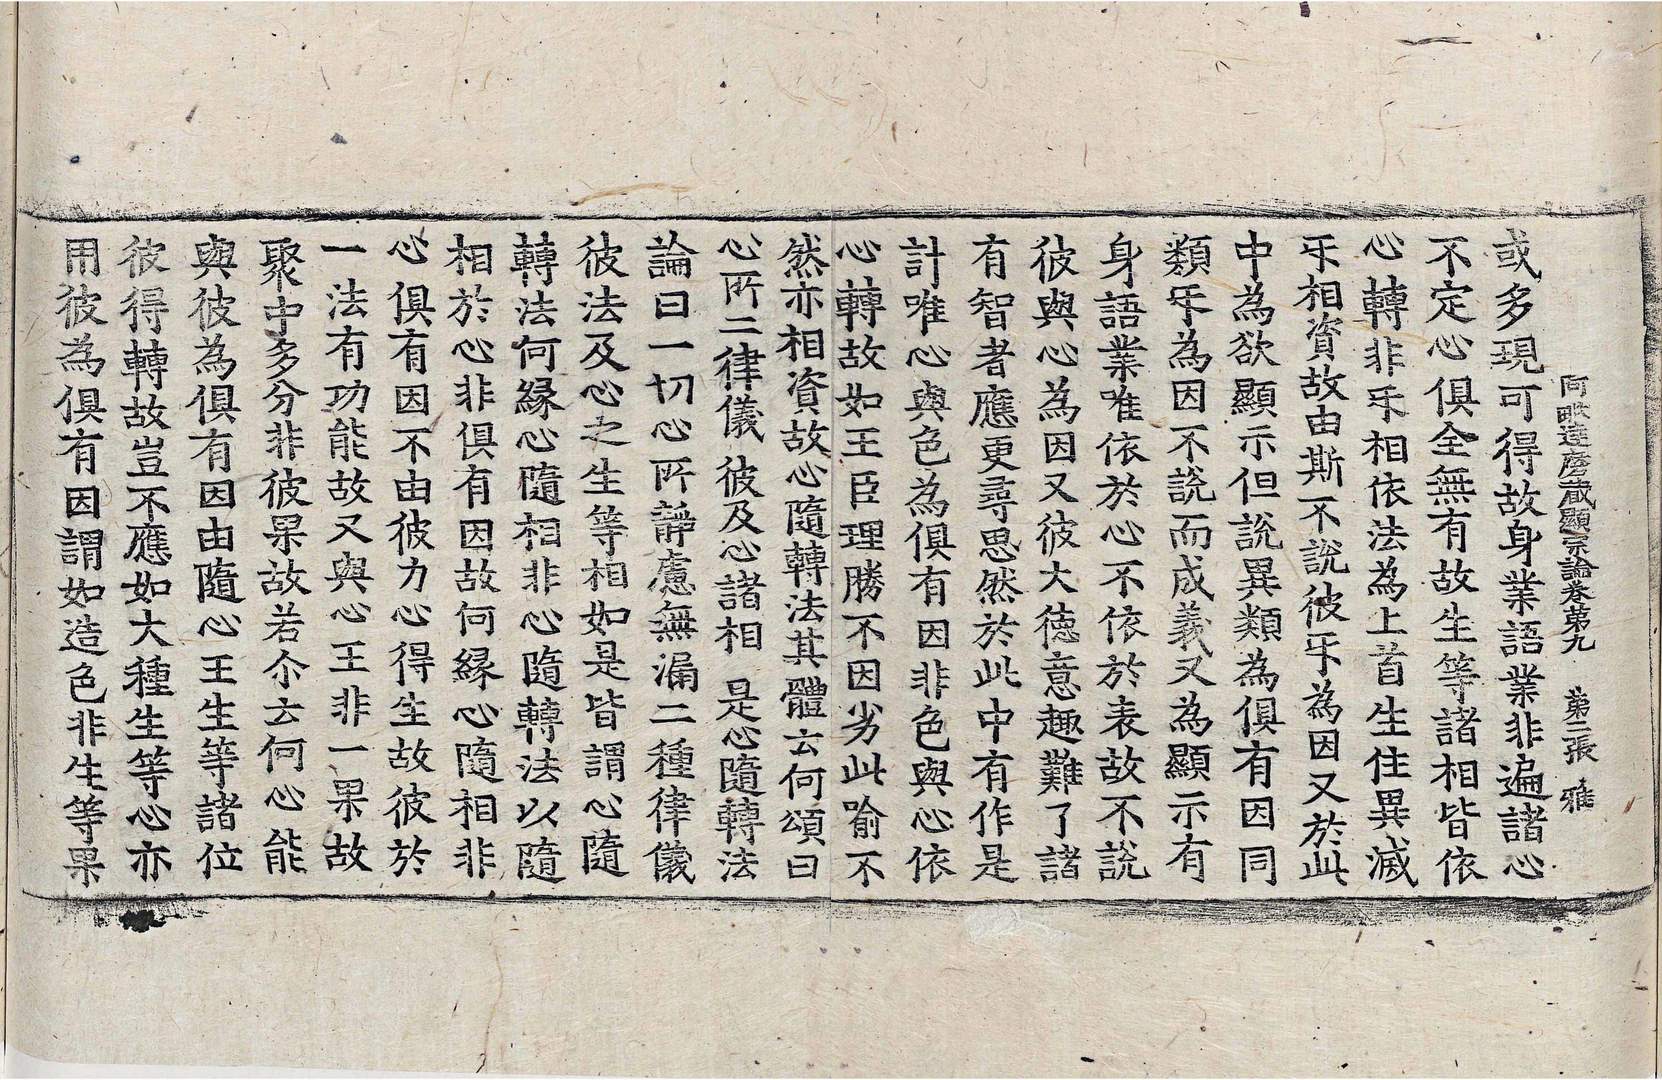 阿毗達磨藏顯宗論卷第九　第二張　雅
或多現可得故身業語業非遍諸心
不定心俱全無有故生等諸相皆依
心轉非㸦相依法為上首生住異滅
㸦相資故由斯不說彼㸦為因又於此
中為欲顯示但說異類為俱有因同
類㸦為因不說而成義又為顯示有
身語業唯依於心不依於表故不說
彼與心為因又彼大德意趣難了諸
有智者應更尋思然於此中有作是
計唯心與色為俱有因非色與心依
心轉故如王臣理勝不因劣此喻不
然亦相資故心隨轉法其體云何頌曰
心所二律儀　彼及心諸相　是心隨轉法
論曰一切心所靜慮無漏二種律儀
彼法及心之生等相如是皆謂心隨
轉法何緣心隨相非心隨轉法以隨
相於心非俱有因故何緣心隨相非
心俱有因不由彼力心得生故彼於
一法有功能故又與心王非一果故
聚中多分非彼果故若尒云何心能
與彼為俱有因由隨心王生等諸位
彼得轉故豈不應如大種生等心亦
用彼為俱有因謂如造色非生等果